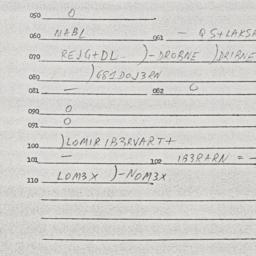 050 0
060 NABL 061 - QS+LAKSA
070 REJG+DL )-DRORNE )DRIRNE
080 )GS1DOJ3RN
081 - 082 0
090 0
091 0
100 )LOMIR IB3RVART+
101 - 102 IB3RARN = -
110 LOM3X )-NOM3X